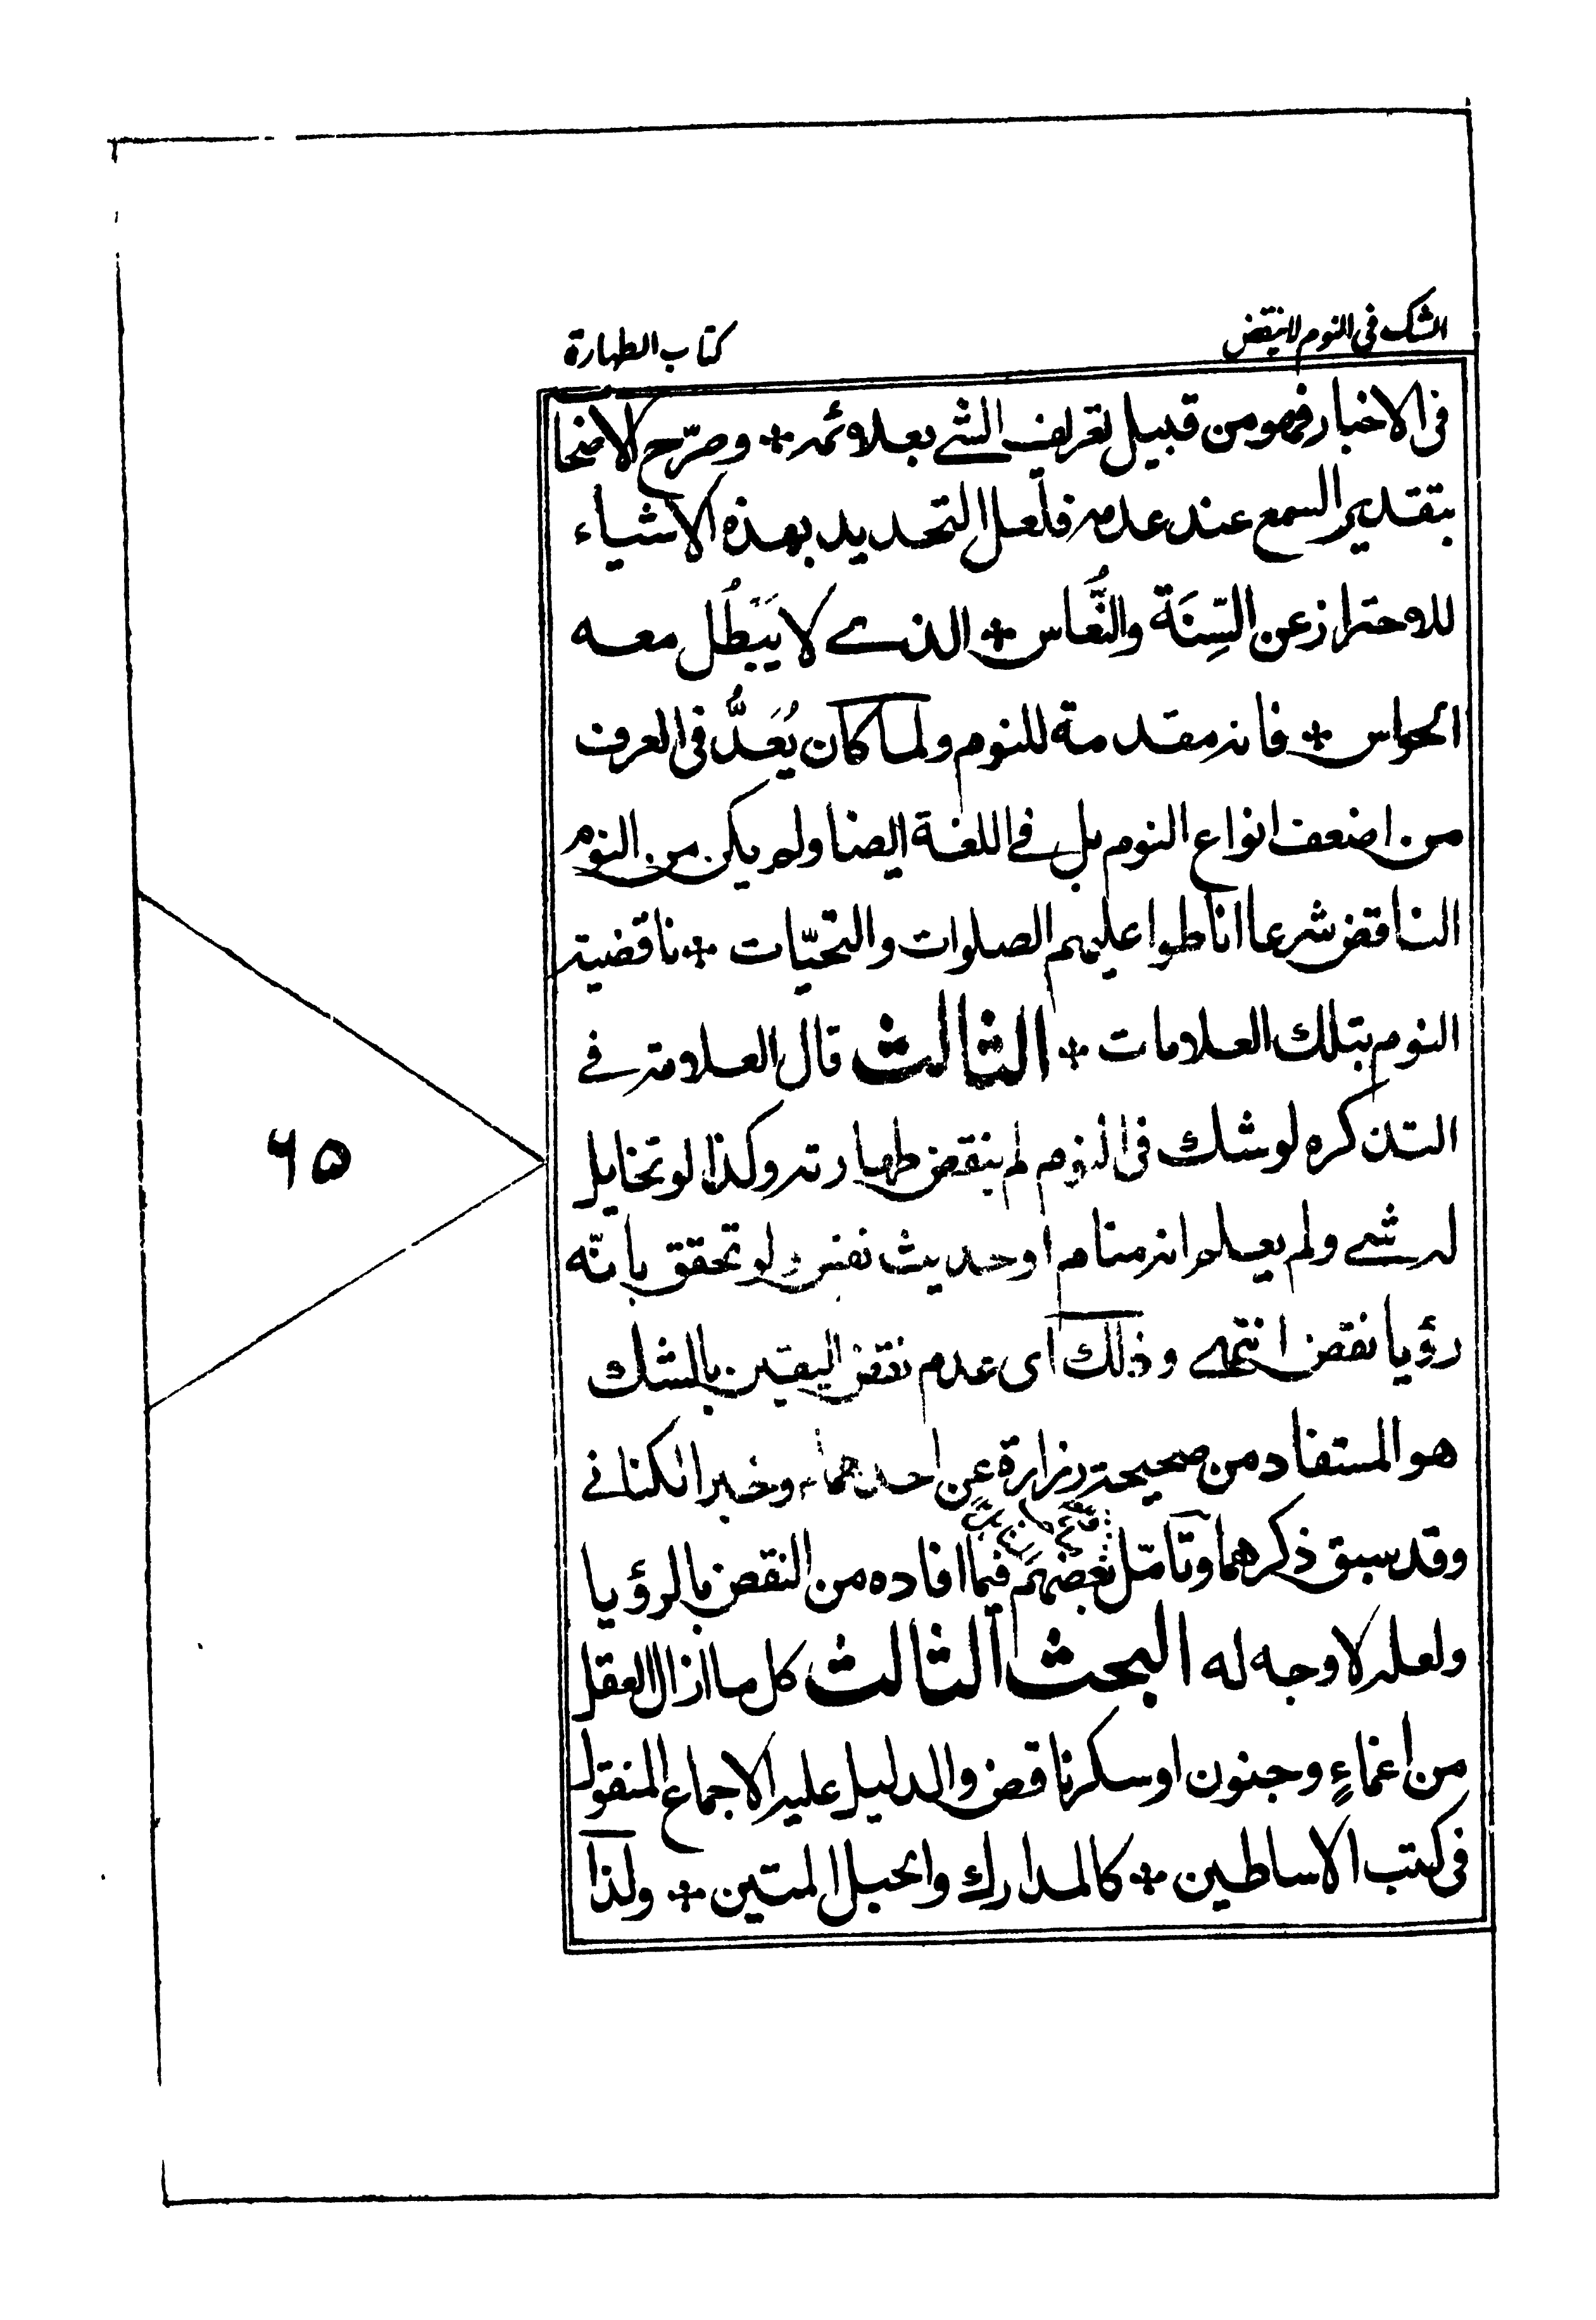 الشك في النوم لا ينقض
كتاب الطهارة
في الاخبار فهو من قبيل تعريف الشے بعلائمه ٭ وصرّح الاصحا
بتقدير السمع عند عدمه فلعل التحديد بهذه الاشياء
للاحتراز عن السِّنَة والنُّعاس ٭ الذے لا يَبْطُل معه
الحواس ٭ فانه مقدمة للنوم ولما كان يُعَدُّ في العرف
من اضعف انواع النوم بل فے اللغة ايضا ولم يكن من النوم
الناقض شرعا اناطوا عليهم الصلوات والتحيّات ٭ ناقضية
النوم بتلك العلامات ٭ الثالث قال العلامة فے
التذكره لو شك في النوم لم ينقض طهارته وكذا لو تخايل
له شے ولم يعلم انه منام او حديث نفس ولو تحقق بانّه
رؤيا نقض انتهے وذلك اى عدم نقض اليقين بالشك
هو المستفاد من صحيحة زرارة عن احدهما ء وخبر الكنانے
وقد سبق ذكرهما وتامّل بعضهم فيما افاده من النقض بالرؤيا
ولعله لا وجه له البحث الثالث كل ما ازال العقل
من اغماءٍ وجنون او سكر ناقض والدليل عليه الاجماع المنقول
في كتب الاساطين ٭ كالمدارك والحبل المتين ٭ ولذا
۶۵